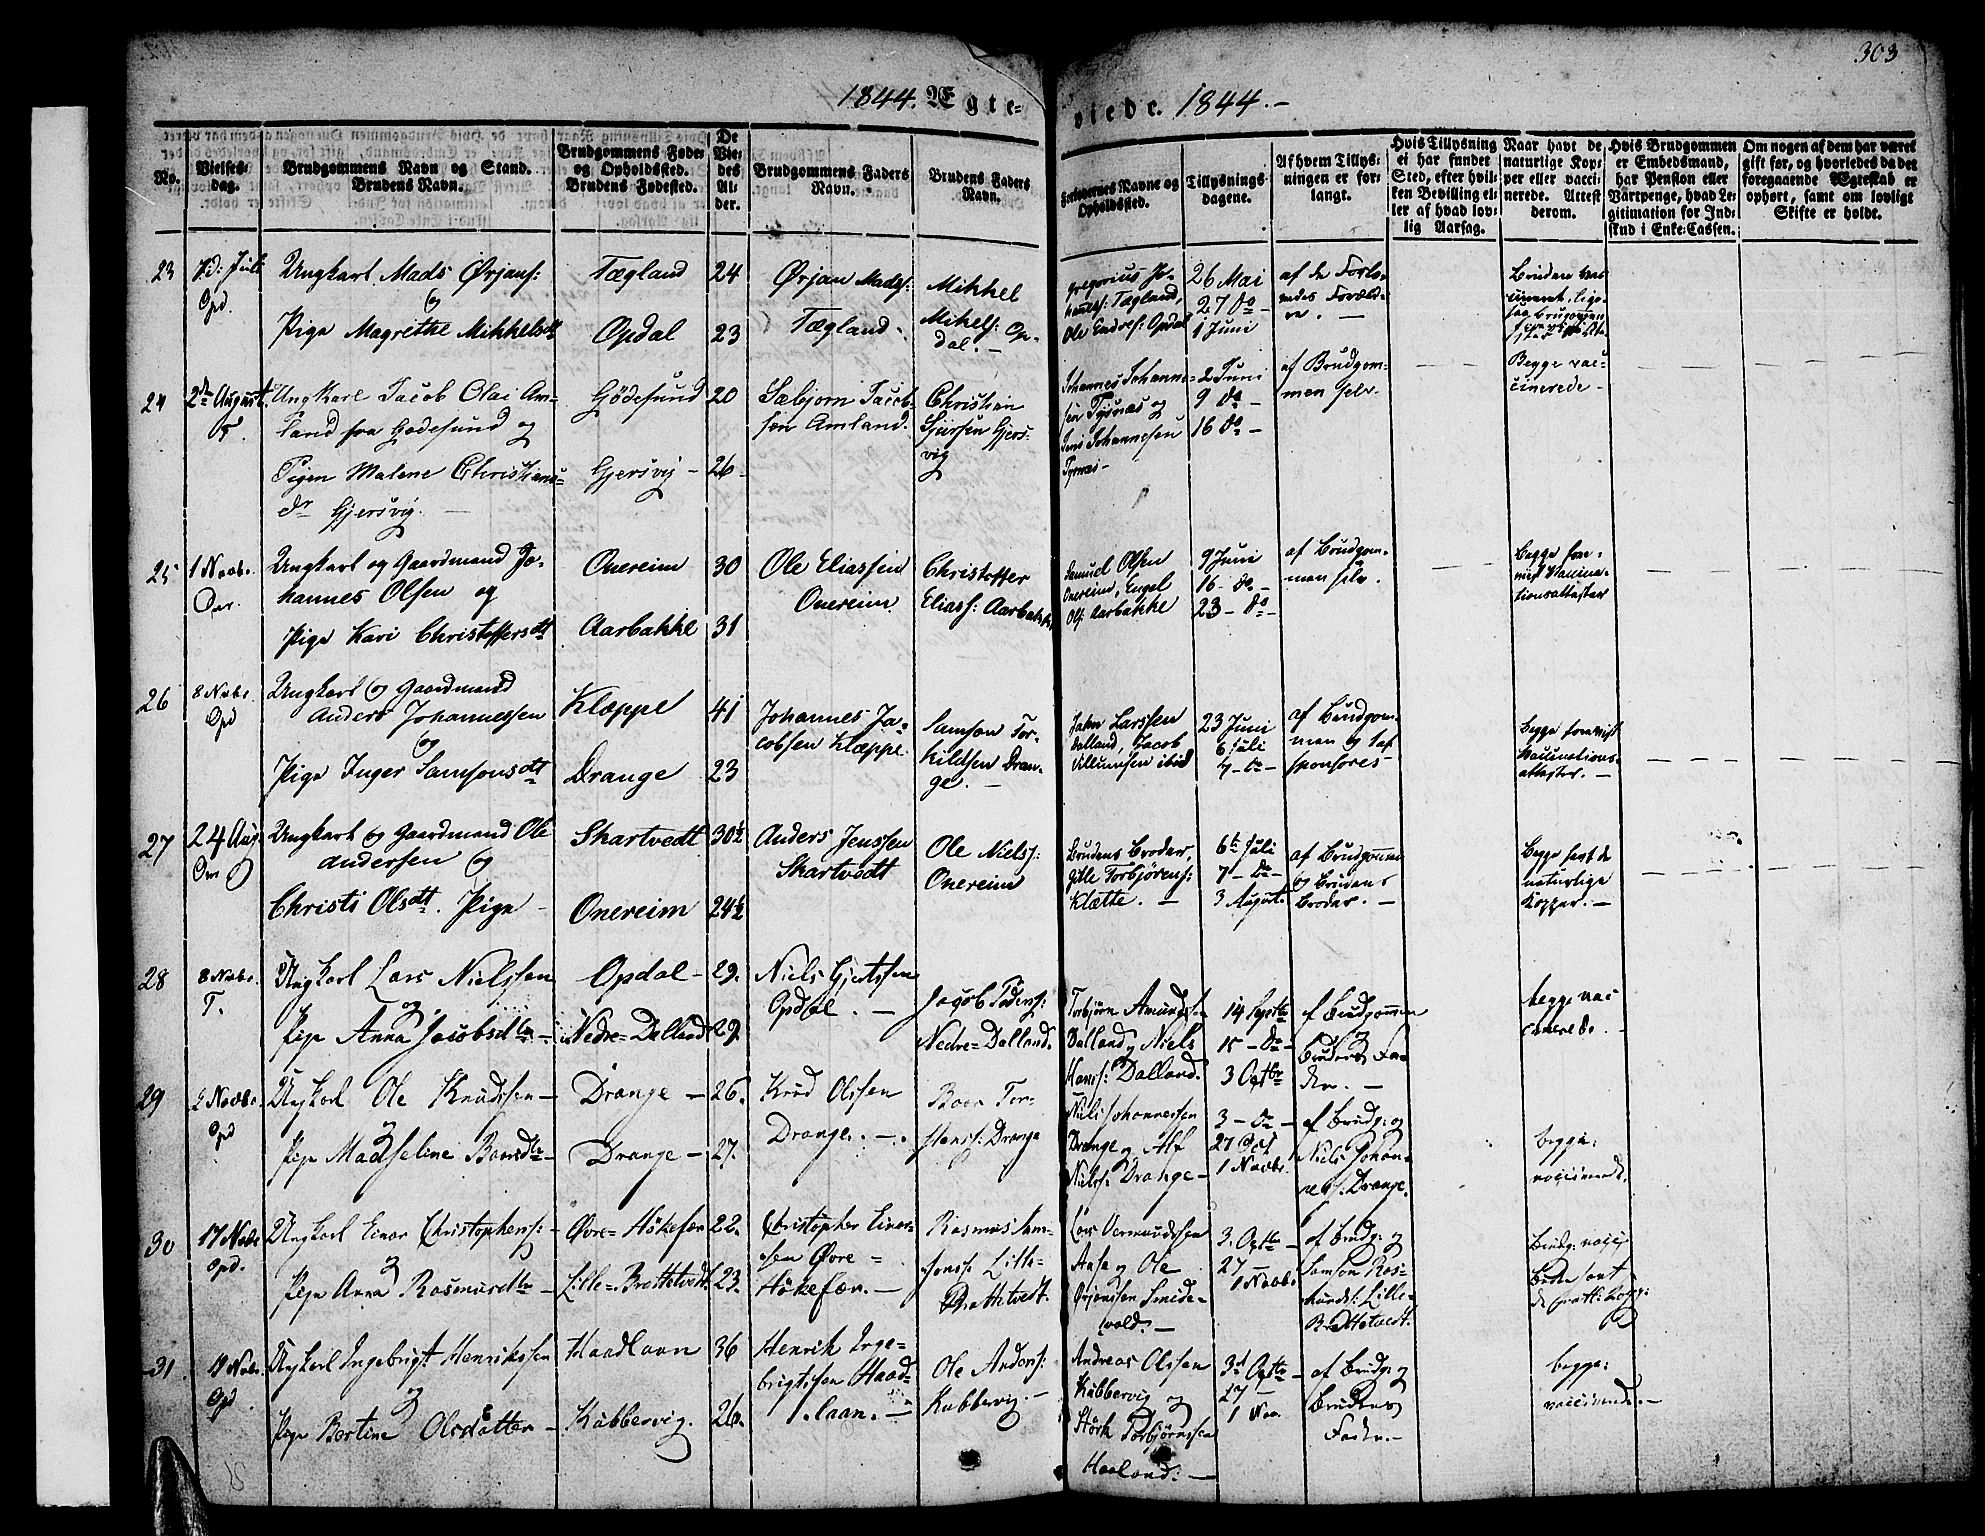 303
1844. Ægte=
viede. 1844.-
No.
Vielses-
dag.
Brudgommens Navn og Stand.
Brudens Navn.
Brudgommens Føde-
og Opholdssted.
Brudens Fødested.
De
Vie-
des
Al-
der.
Brudgommens Faders
Navn.
Brudens Faders
Navn.
Forlovernes Navne og
Opholdssted.
Tillysnings-
dagene.
Af hvem Tillys-
ningen er for-
langt.
Hvis Tillysning
ei har fundet
Sted, efter hvil-
ken Bevilling el-
ler af hvad lov-
lig Aarsag.
Naar havt de
naturlige Kop-
per eller vacci-
nerede. Attest
derom.
Hvis Brudgommen
er Embedsmand,
har Pension eller
Vartpenge, hvad Le-
gitimation for Ind-
skud i Enke-Cassen.
Om nogen af dem har været
gift før, og hvorledes da det
foregaaende Ægteskab er
ophørt, samt om lovligt
Skifte er holdt.
23
Juli
Opd.
Ungkarl Mads Ørjans:
og
Pige Magrethe Mikkelsdtr
Tægland
Opdal
24
23
Ørjan Mads:
Tægland.
Mikkel
Mikels: Op-
dal. -
Gregorius Jo-
Tægland,
Ole Endres: Opdal
26 Mai
27 Do -
1 Juni
af de Forlo-
vedes Foræld-
re. -
24
2den August
T.
Ungkarl Jacob Olai Am-
land fra Godesund og
Pigen Malene Christians-
dr Gjersvig.
Gödesund
Gjersvig -
20
26
Sæbjorn Jacob-
sen Amland.
Christian
Sjursen Gjers-
vig
Johannes Johanne-
sen Tysnæs og
Jens Johannesen
Tysnæs -
2 Juni
9 Do -
16 Do -
af Brudgom-
men selv.
Begge vac-
cinerede -
25
1 Novbr.
Onr.
Ungkarl og Gaardmand Jo-
hannes Olsen og
Pige Kari Christoffersdtr
Onereim
Aarbakke
30
31
Ole Eliassen
Onereim
Christoffer
Elias: Aarbakke
Samuel Olsen
Onereim, Engel
Ols: Aarbakke
9 Juni
16 - Do -
23 - Do -
af Brudgom-
men selv.
Begge fore-
vist Vaccina-
tionsattester
26
8 Novbr.
Opd
Ungkarl og Gaardmand
Anders Johannessen
og
Pige Inger Samsonsdtr
Klæppe
Drange
41
23
Johannes Ja-
cobsen Klæppe.
Samson Tor-
kildsen Dran-
ge. -
John Larssen
Dalland, Jacob
Villumsen ibid
23 Juni
6 Juli
7 - Do -
af Brudgom-
men og 1 af
sponsores -
Begge forevist
Vaccinations-
attester. -
27
24 Aug
Onr
Ungkarl og Gaardmand Ole
Andersen og
Christi Olsdtr. Pige -
Skartvedt
Onereim
30½
24½
Anders Jenssen
Skartvedt
Ole Niels:
Onereim
Brudens Broder,
Gitle Torbjørens:
Klætte. -
6te Juli
7 - Do -
3 August.
af Brudgommen
og Brudens
Broder. -
Begge havt de
naturlige
Kopper. -
28
8 Novbr.
T.
Ungkarl Lars Nielssen
og
Pige Anna Jacobsdtr -
Opdal -
Nedre=Dalland
29.
29.
Niels Gjertssen
Opdal. -
Jacob Peders:
Nedre=Dalland.
Torbjörn Amundssen
Dalland og Niels
Hans: Dalland.
14 Septbr
15 - Do -
3 Octbr
af Brudgommen
og
Brudens Fa-
der. -
begge vac-
cinerede. -
29
2 Novbr.
Opd
Ungkarl Ole Knudssen -
og
Pige Madseline Baarsdtr -
Drange -
Drange -
26.
27.
Knud Olssen
Drange. -
Baar Tor-
stens: Drange
Niels Johannessen
Drange og Alf
Niels: Drange -
3 - Do -
27 Oct
1 Novbr.
af Brudg: og
Niels Johan-
nes: Drange.
begge
vaccinerede.
30
17 Novbr
Opd.
Ungkarl Einar Christophers: -
og
Pige Anna Rasmusdtr -
Øvre=Hökefæn
Lille=Brattetvedt.
22.
23.
Christopher Einar-
sen Øvre=
Hökefæn. -
Rasmus Sam-
sons: Lille-
Brattetvedt.
Lars Vermundssen
Aase og Ole
Ørjanssen Smide-
vold. -
3. Octbr -
27 -
1 Novbr.
af Brudg: og
Samson Ras-
mus: Lille-
Brattetvedt.
31.
Novbr.
Opd
Ungkarl Ingebrigt Henrikssen
og
Pige Bertine Olsdatter -
Haadlaan
Kubbervig.
36
26.
Henrik Inge-
brigtssen Haad-
laan. -
Ole Anders:
Kubbervig. -
Andreas Olssen
Kubbervig og
Störk Torbjörnssen
Haaland: -
3d Octbr -
27 -
1 Nov.
af Brudg: og
Brudens
Fader. -
begge
vaccinerede. -